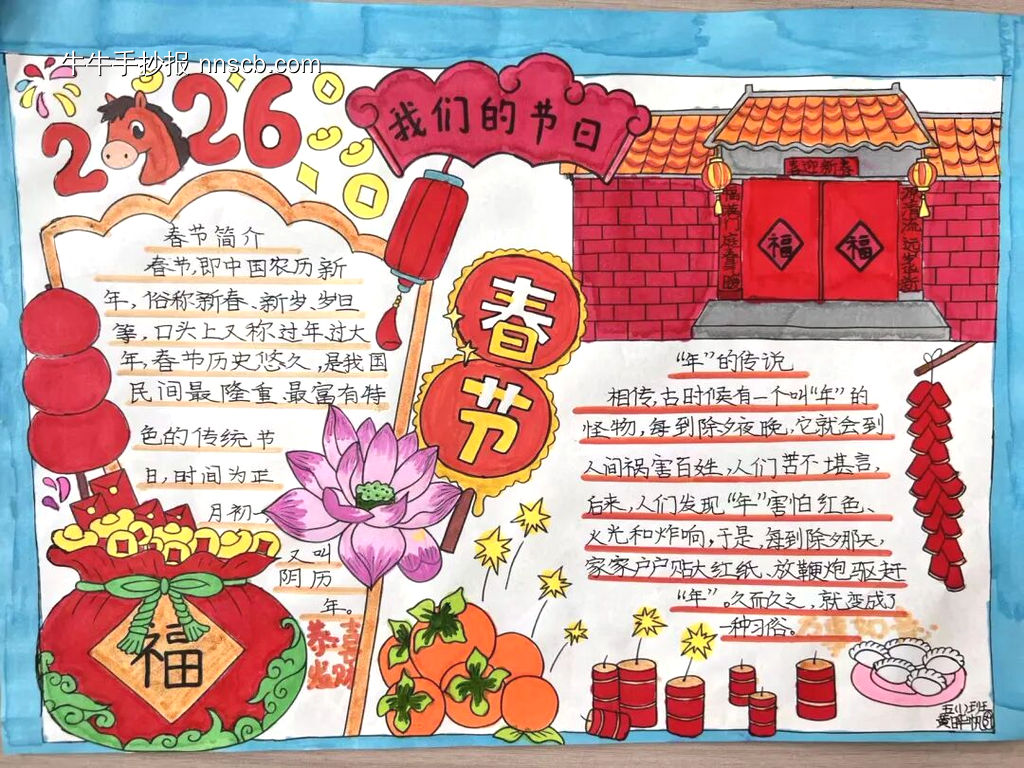 牛牛手抄报 nnscb.com
2026
我们的节日
春节简介
春节,即中国农历新
年,俗称新春、新岁、岁旦
等,口头上又称过年过大
年,春节历史悠久,是我国
民间最隆重、最富有特
色的传统节
日,时间为正
月初一,
又叫
阴历
年。
恭喜
发财
福
春
节
喜迎新春
福
福
福满门庭春晓
“年”的传说
相传,古时候有一个叫“年”的
怪物,每到除夕夜晚,它就会到
人间祸害百姓,人们苦不堪言,
后来,人们发现“年”害怕红色、
火光和炸响,于是,每到除夕那天,
家家户户贴大红纸、放鞭炮驱赶
“年”。久而久之,就变成了
一种习俗。
五(1)班